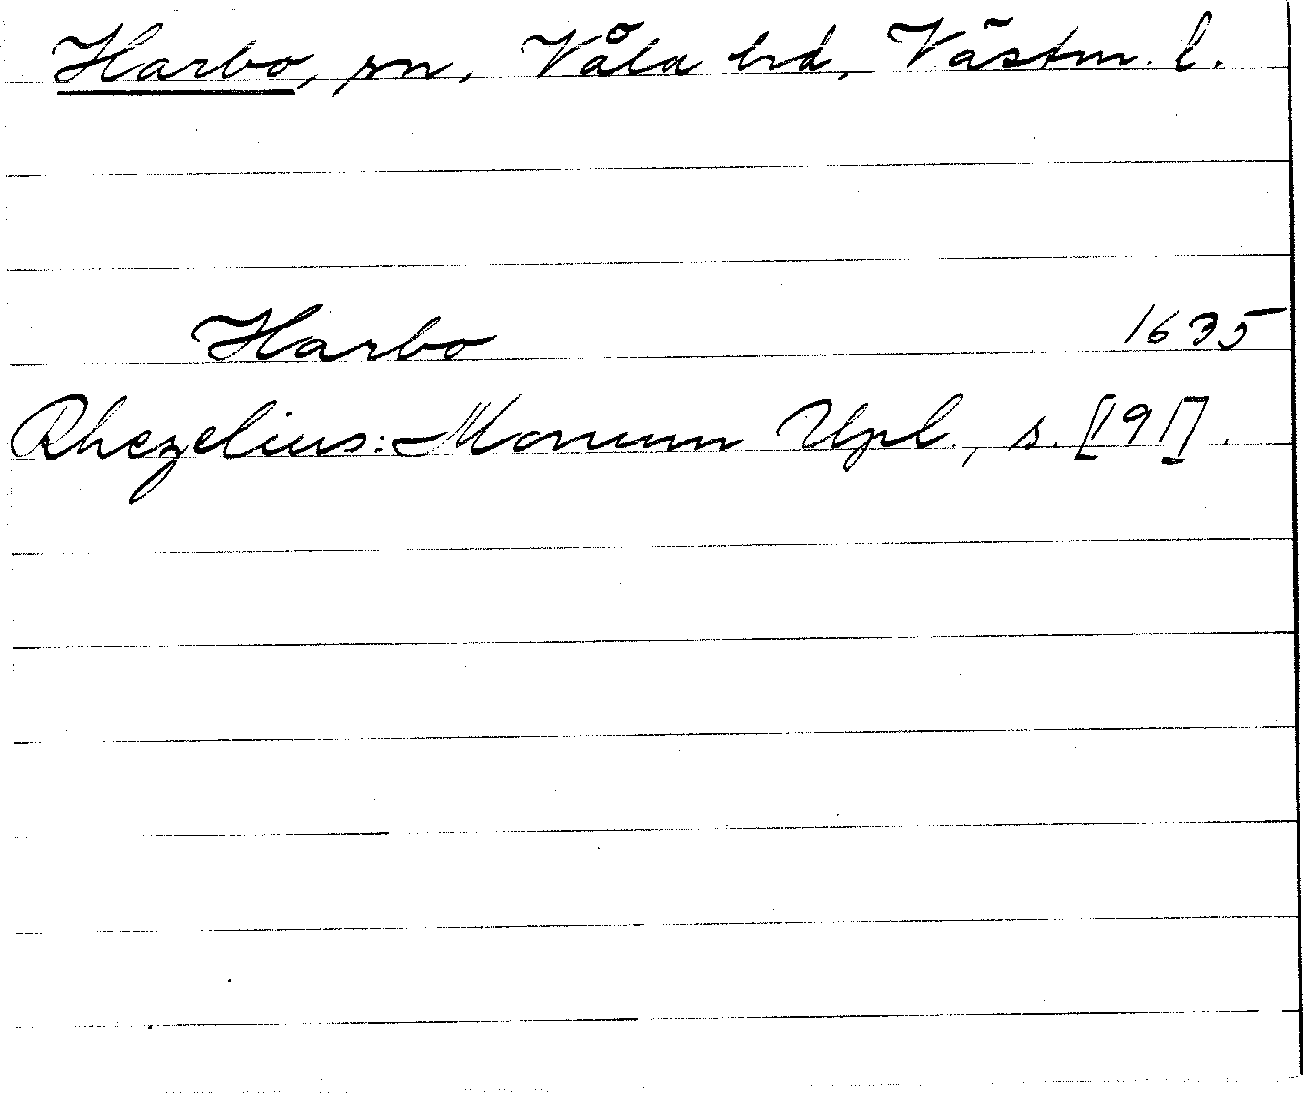 Harbo, sn, Våla hd, Västm. l.
Harbo 1635
Rhezelius: Monum Upl., s. [191].